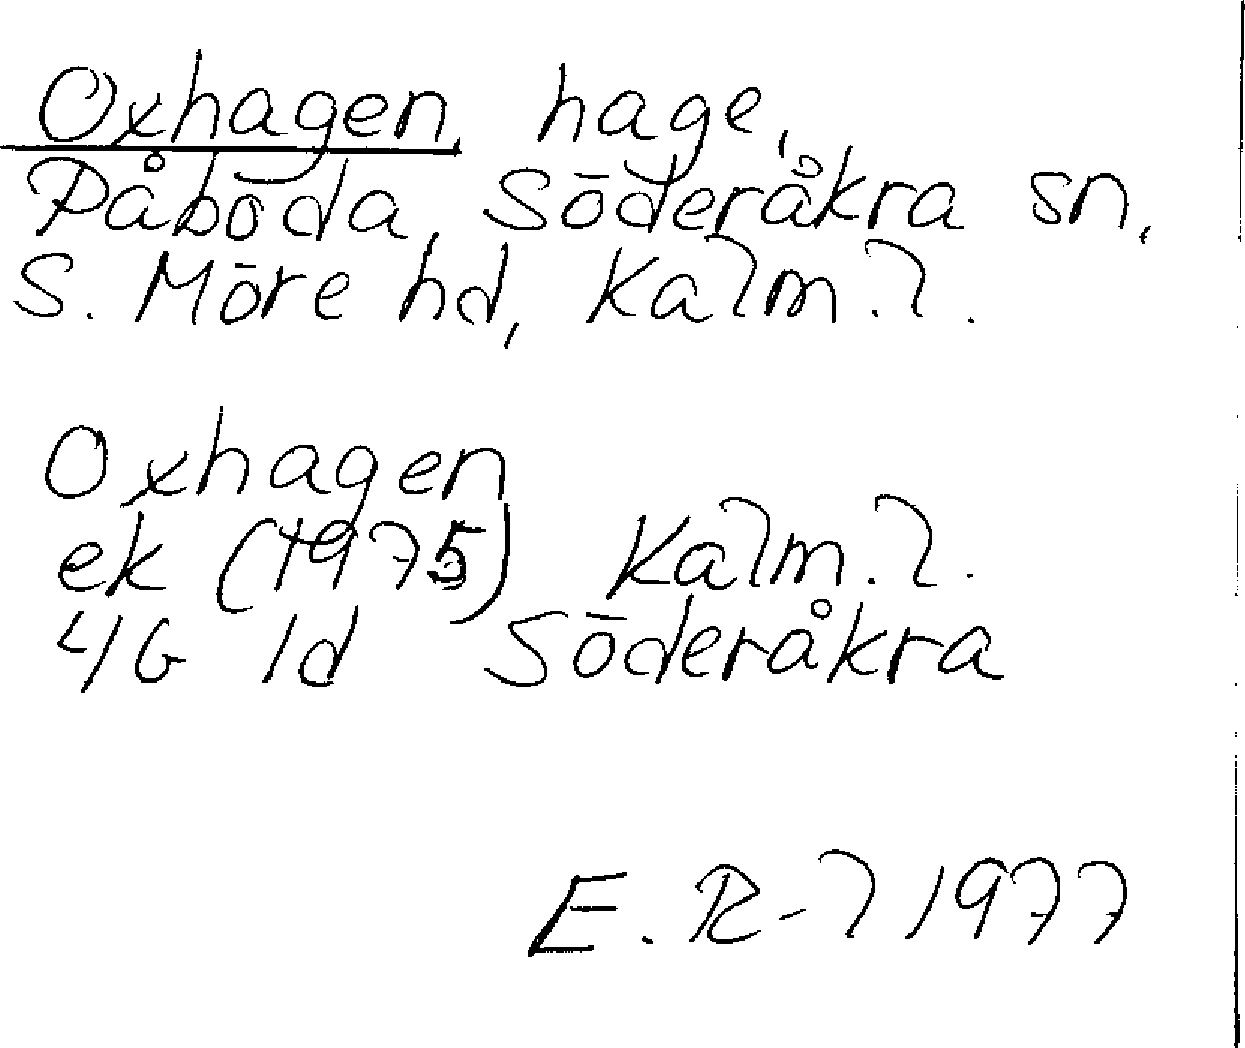 Oxhagen, hage,
Påböda, Söderåkra sn,
S. Möre hd, Kalm. l.
Oxhagen
ek (1975) Kalm. l.
4G 1d Söderåkra
E. R-l 1977